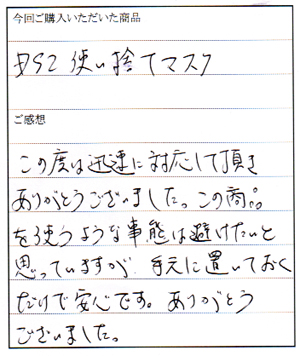 今回ご購入いただいた商品
DS2 使い捨てマスク
ご感想
この度は迅速に対応して頂き
ありがとうございました。この商品
を使うような事態は避けたいと
思っていますが 手元に置いておく
だけで安心です。ありがとう
ございました。